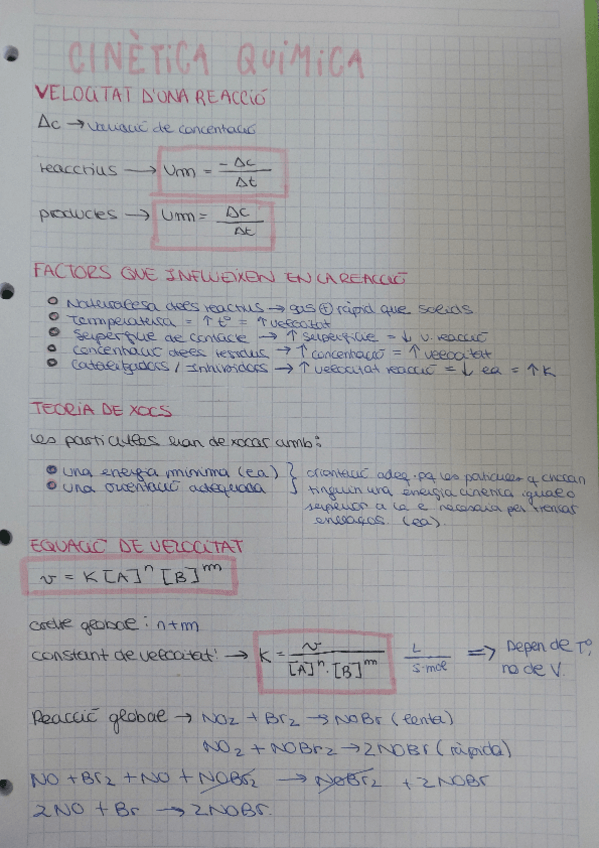 CINÈTICA QUÍMICA
VELOCITAT D'UNA REACCIÓ
Δc → variació de concentració
reactius → Vm = -Δc / Δt
productes → Vm = Δc / Δt
FACTORS QUE INFLUEIXEN EN LA REACCIÓ
Naturalesa dels reactius → gas ⊕ ràpid que sòlids
Temperatura = ↑ tº = ↑ velocitat
Superfície de contacte → ↑ superfície = ↓ v. reacció
concentració dels → ↑ concentració = ↑ velocitat
Catalitzadors / Inhibidors → ↑ velocitat reacció = ↓ ea = ↑ K
TEORIA DE XOCS
Les partícules han de xocar amb:
una energia mínima (ea) } orientació adeq. pq les partícules q
una orientació adequada } tinguin una energia cinètica igual o
superior a la e necessària per trencar
enllaços. (ea).
EQUACIÓ DE VELOCITAT
v = K [A]^n [B]^m
ordre global: n+m
constant de velocitat: → K = v / [A]^n · [B]^m L / s·mol ⇒ Depen de Tº,
no de V.
Reacció global → NO2 + Br2 → NOBr (lenta)
NO2 + NOBr2 → 2NOBr (ràpida)
NO + Br2 + NO + NOBr2 → NOBr2 + 2NOBr
2NO + Br → 2NOBr.